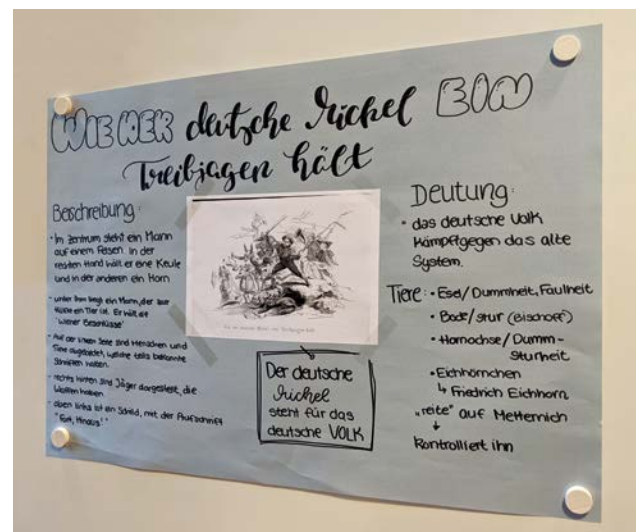 WIE DER deutsche Michel EIN
Treibjagen hält
Beschreibung:
• Im Zentrum steht ein Mann
auf einem Felsen. In der
rechten Hand hält er eine Keule
und in der anderen ein Horn
- unter ihm liegt ein Mann, der zur
Hälfte ein Tier ist. Er hält die
"Wiener Beschlüsse"
- Auf der linken Seite sind Menschen und
Tiere abgebildet, welche teils bekannte
Schriften halten.
- rechts hinten sind Jäger dargestellt, die
Waffen haben
- oben links ist ein Schild, mit der Aufschrift
"Fort, Hinaus!"
Der deutsche
Michel
steht für das
deutsche VOLK
Deutung:
• das deutsche Volk
kämpft gegen das alte
System.
Tiere: • Esel/Dummheit, Faulheit
• Bock/stur (Bischoff)
• Hornochse/Dumm-
sturheit
• Eichhörnchen
↳ Friedrich Eichhorn
„reite" auf Metternich
↓
kontrolliert ihn